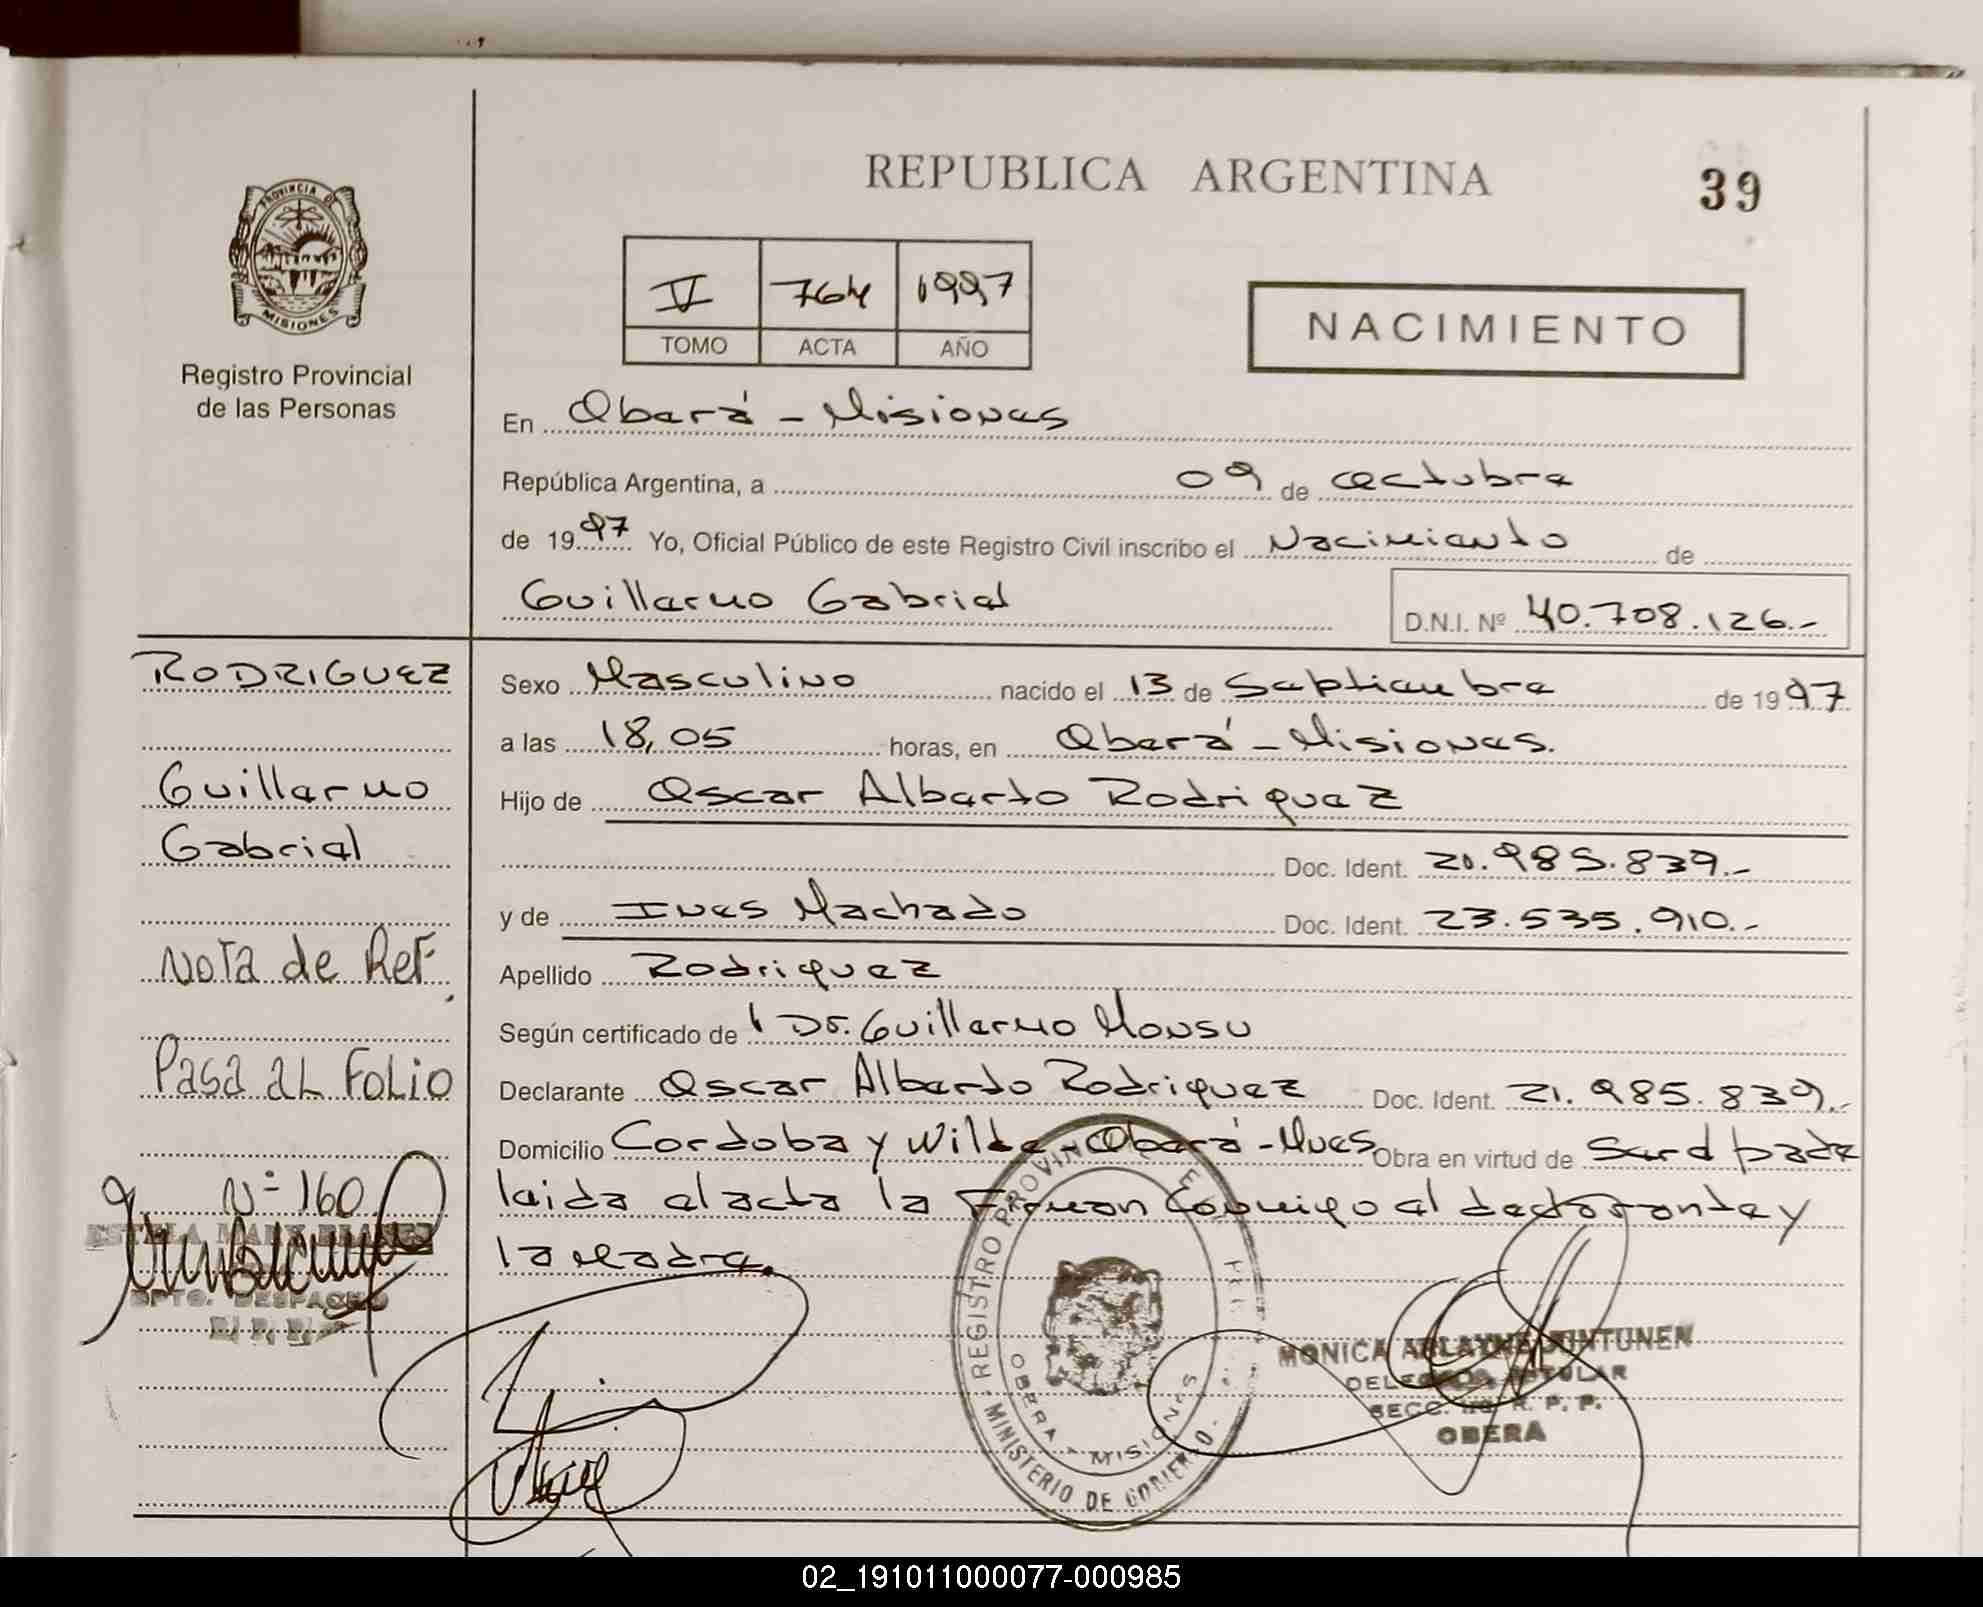 REPUBLICA ARGENTINA
39
PROVINCIA DE
MISIONES
Registro Provincial
de las Personas
V 764 1997
TOMO ACTA AÑO
NACIMIENTO
En Oberá - Misiones
República Argentina, a 09 de octubre
de 1997 Yo, Oficial Público de este Registro Civil inscribo el Nacimiento de
Guillermo Gabriel
D.N.I. Nº 40.708.126.-
RODRIGUEZ
Guillermo
Gabriel
Nota de Ref.
Pasa al Folio
Nº 160
Sexo Masculino nacido el 13 de Septiembre de 1997
a las 18,05 horas, en Oberá - Misiones.
Hijo de Oscar Alberto Rodriguez
Doc. Ident. 20.985.839.-
y de Ines Machado Doc. Ident. 23.535.910.-
Apellido Rodriguez
Según certificado de Dr. Guillermo Monsu
Declarante Oscar Alberto Rodriguez Doc. Ident. 21.985.839.-
Domicilio Cordoba y Wilde - Oberá - Mnes Obra en virtud de ser el padre
leida el acta la Firman Conmigo el declarante y
la Madre.
REGISTRO PROVINCIAL DE
MINISTERIO DE GOBIERNO
OBERA - MISIONES
DPTO. DESPACHO
R. P. P.
MONICA
DELEGADA TITULAR
SECC. R. P. P.
OBERA
02_191011000077-000985